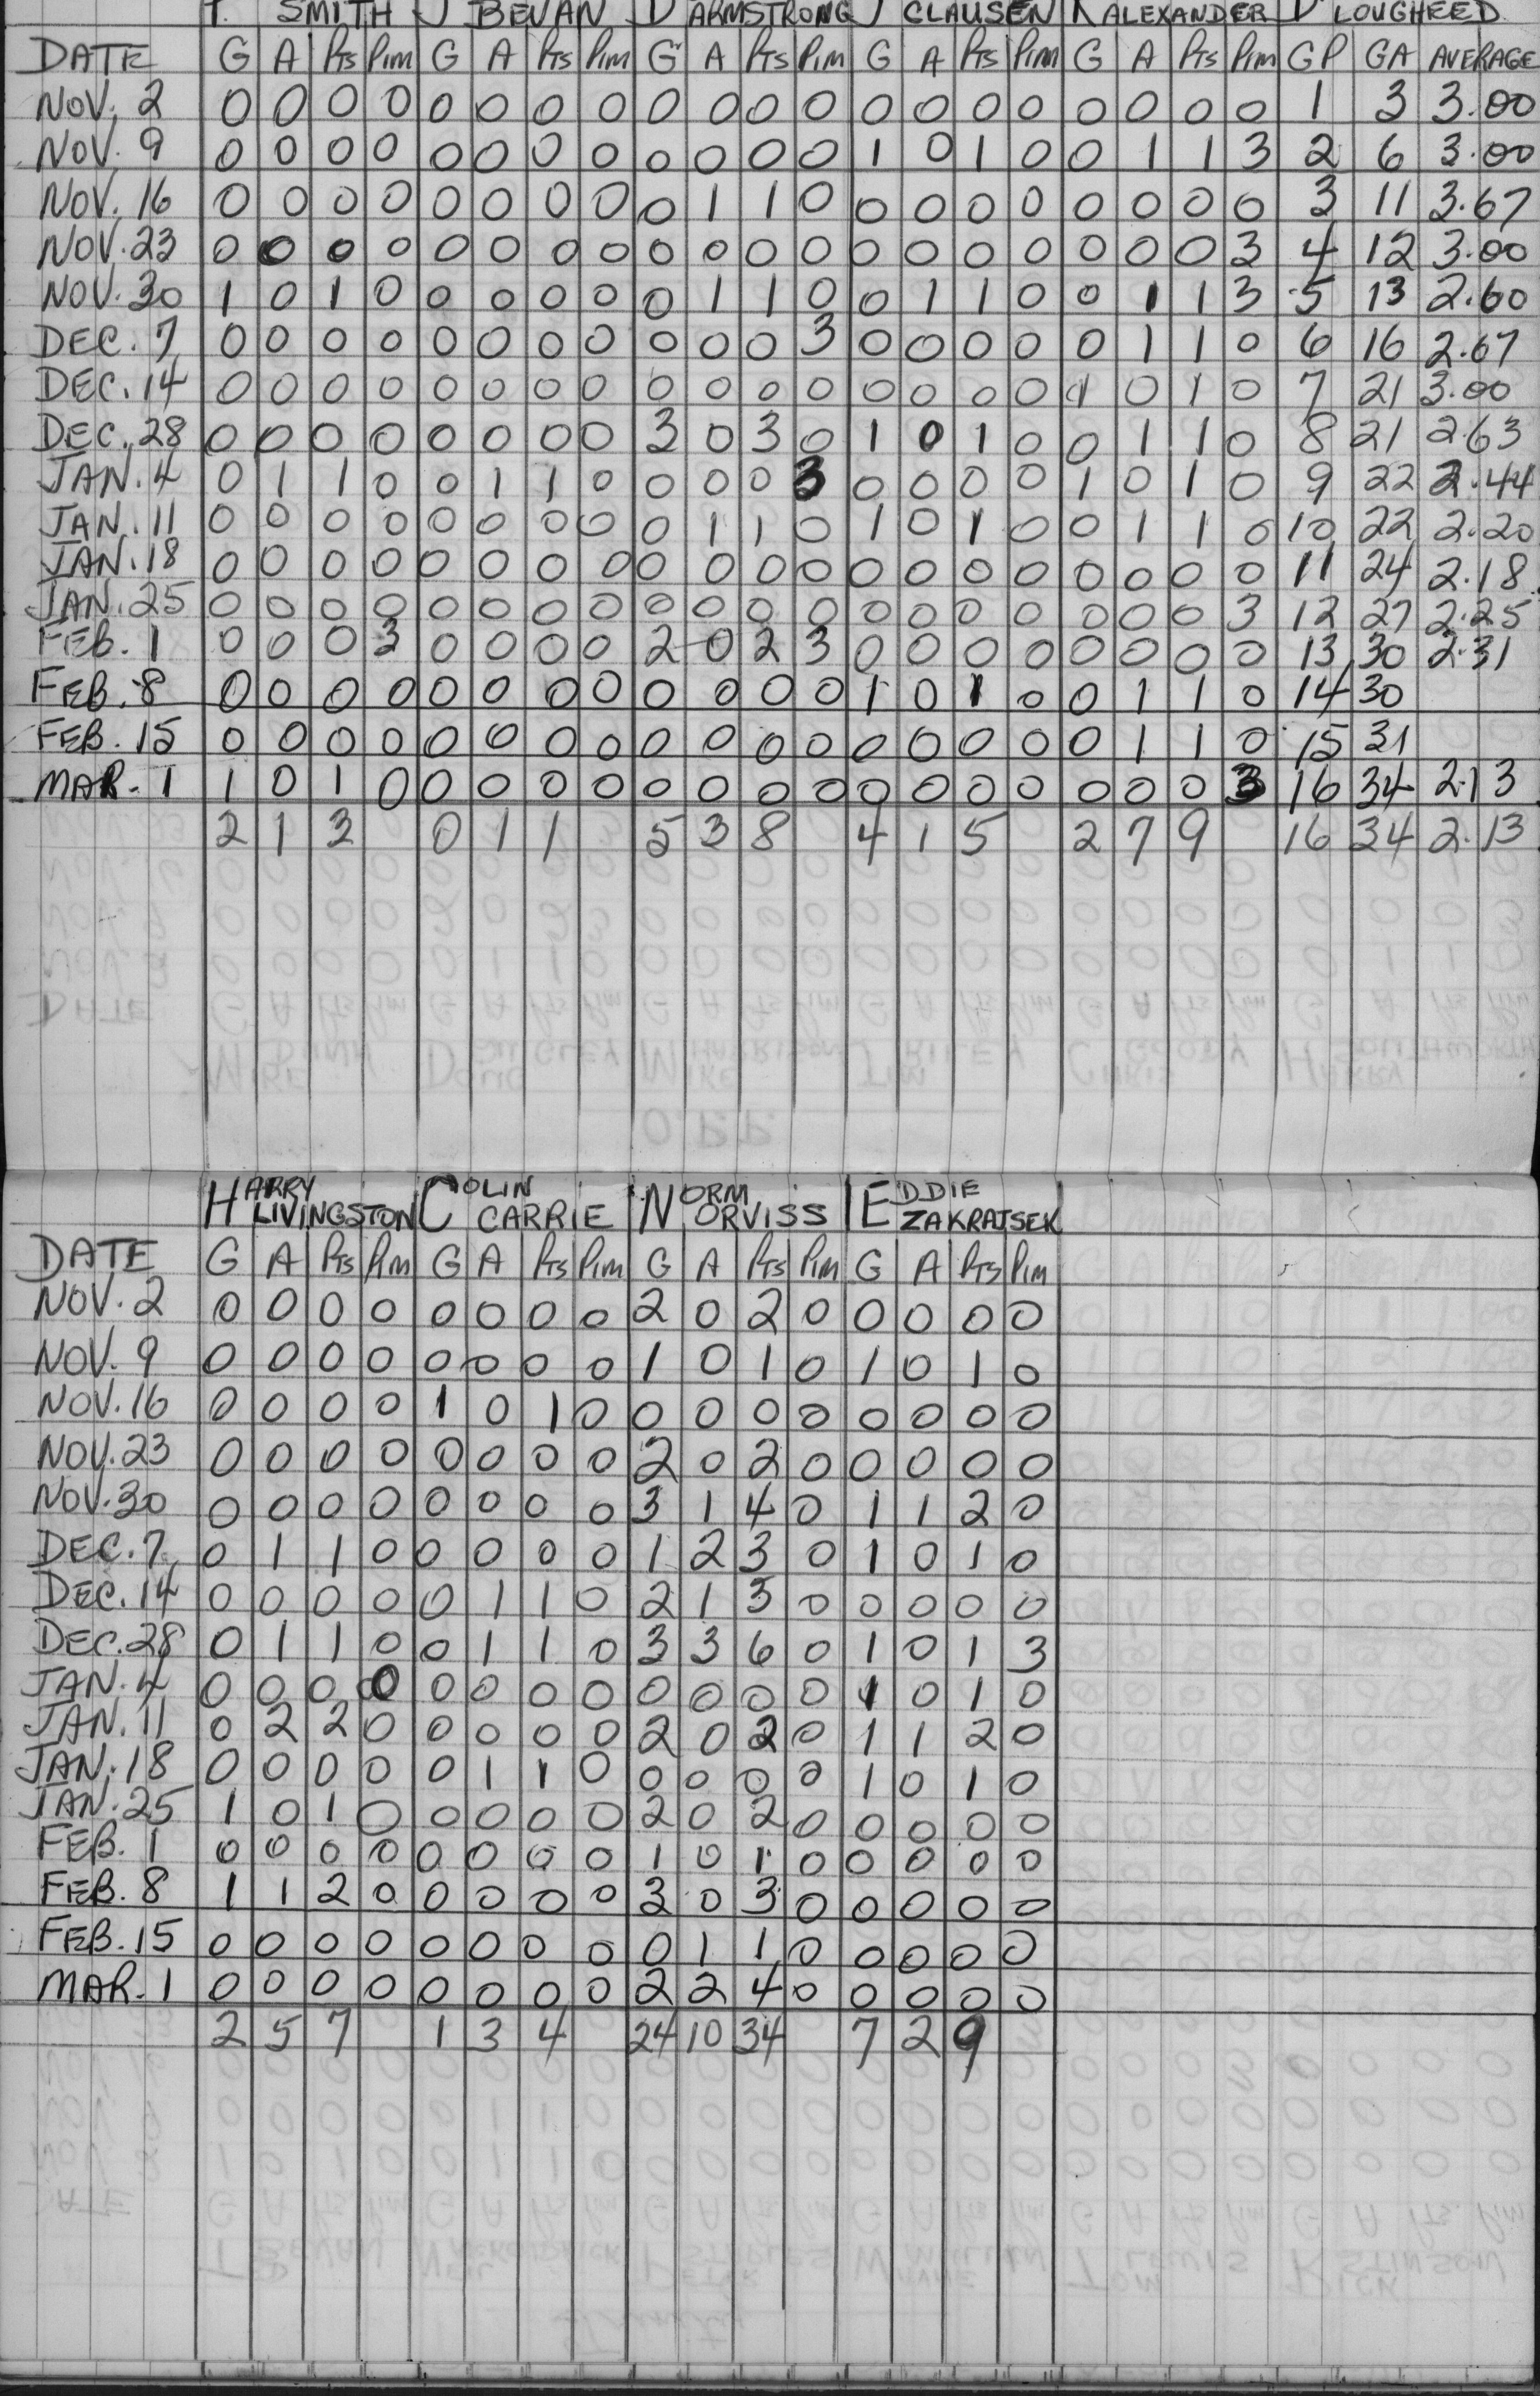 T. SMITH J BEVAN D ARMSTRONG J CLAUSEN K ALEXANDER D LOUGHEED
DATE G A Pts Pim G A Pts Pim G A Pts Pim G A Pts Pim G A Pts Pim GP GA AVERAGE
NOV. 2 0 0 0 0 0 0 0 0 0 0 0 0 0 0 0 0 0 0 0 0 1 3 3.00
NOV. 9 0 0 0 0 0 0 0 0 0 0 0 0 1 0 1 0 0 1 1 3 2 6 3.00
NOV. 16 0 0 0 0 0 0 0 0 0 1 1 0 0 0 0 0 0 0 0 0 3 11 3.67
NOV. 23 0 0 0 0 0 0 0 0 0 0 0 0 0 0 0 0 0 0 0 3 4 12 3.00
NOV. 30 1 0 1 0 0 0 0 0 0 1 1 0 0 1 1 0 0 1 1 3 5 13 2.60
DEC. 7 0 0 0 0 0 0 0 0 0 0 0 3 0 0 0 0 0 1 1 0 6 16 2.67
DEC. 14 0 0 0 0 0 0 0 0 0 0 0 0 0 0 0 0 1 0 1 0 7 21 3.00
DEC. 28 0 0 0 0 0 0 0 0 3 0 3 0 1 0 1 0 0 1 1 0 8 21 2.63
JAN. 4 0 1 1 0 0 1 1 0 0 0 0 3 0 0 0 0 1 0 1 0 9 22 2.44
JAN. 11 0 0 0 0 0 0 0 0 0 1 1 0 1 0 1 0 0 1 1 0 10 22 2.20
JAN. 18 0 0 0 0 0 0 0 0 0 0 0 0 0 0 0 0 0 0 0 0 11 24 2.18
JAN. 25 0 0 0 0 0 0 0 0 0 0 0 0 0 0 0 0 0 0 0 3 12 27 2.25
FEB. 1 0 0 0 3 0 0 0 0 2 0 2 3 0 0 0 0 0 0 0 0 13 30 2.31
FEB. 8 0 0 0 0 0 0 0 0 0 0 0 0 1 0 1 0 0 1 1 0 14 30
FEB. 15 0 0 0 0 0 0 0 0 0 0 0 0 0 0 0 0 0 1 1 0 15 31
MAR. 1 1 0 1 0 0 0 0 0 0 0 0 0 0 0 0 0 0 0 0 3 16 34 2.13
2 1 3 0 1 1 5 3 8 4 1 5 2 7 9 16 34 2.13
HARRY LIVINGSTON COLIN CARRIE NORM ORVISS EDDIE ZAKRAJSEK
DATE G A Pts Pim G A Pts Pim G A Pts Pim G A Pts Pim
NOV. 2 0 0 0 0 0 0 0 0 2 0 2 0 0 0 0 0
NOV. 9 0 0 0 0 0 0 0 0 1 0 1 0 1 0 1 0
NOV. 16 0 0 0 0 1 0 1 0 0 0 0 0 0 0 0 0
NOV. 23 0 0 0 0 0 0 0 0 2 0 2 0 0 0 0 0
NOV. 30 0 0 0 0 0 0 0 0 3 1 4 0 1 1 2 0
DEC. 7 0 1 1 0 0 0 0 0 1 2 3 0 1 0 1 0
DEC. 14 0 0 0 0 0 1 1 0 2 1 3 0 0 0 0 0
DEC. 28 0 1 1 0 0 1 1 0 3 3 6 0 1 0 1 3
JAN. 4 0 0 0 0 0 0 0 0 0 0 0 0 1 0 1 0
JAN. 11 0 2 2 0 0 0 0 0 2 0 2 0 1 1 2 0
JAN. 18 0 0 0 0 0 1 1 0 0 0 0 0 1 0 1 0
JAN. 25 1 0 1 0 0 0 0 0 2 0 2 0 0 0 0 0
FEB. 1 0 0 0 0 0 0 0 0 1 0 1 0 0 0 0 0
FEB. 8 1 1 2 0 0 0 0 0 3 0 3 0 0 0 0 0
FEB. 15 0 0 0 0 0 0 0 0 0 1 1 0 0 0 0 0
MAR. 1 0 0 0 0 0 0 0 0 2 2 4 0 0 0 0 0
2 5 7 1 3 4 24 10 34 7 2 9